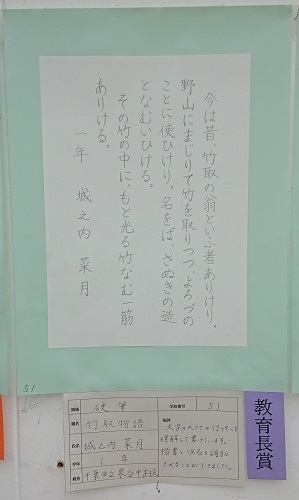 今は昔、竹取の翁といふ者ありけり。
野山にまじりて竹を取りつつ、よろづの
ことに使ひけり。名をば、さぬきの造
となむいひける。
その竹の中に、もと光る竹なむ一筋
ありける。
一年 城之内 菜月
51
硬筆
学校番号 51
題名 竹取物語
氏名 城之内 菜月
学年 年
校名 千葉市立泉谷中学校
文字の大きさや
理解して書けています。
楷書と仮名を調和
させることができました。
教育長賞